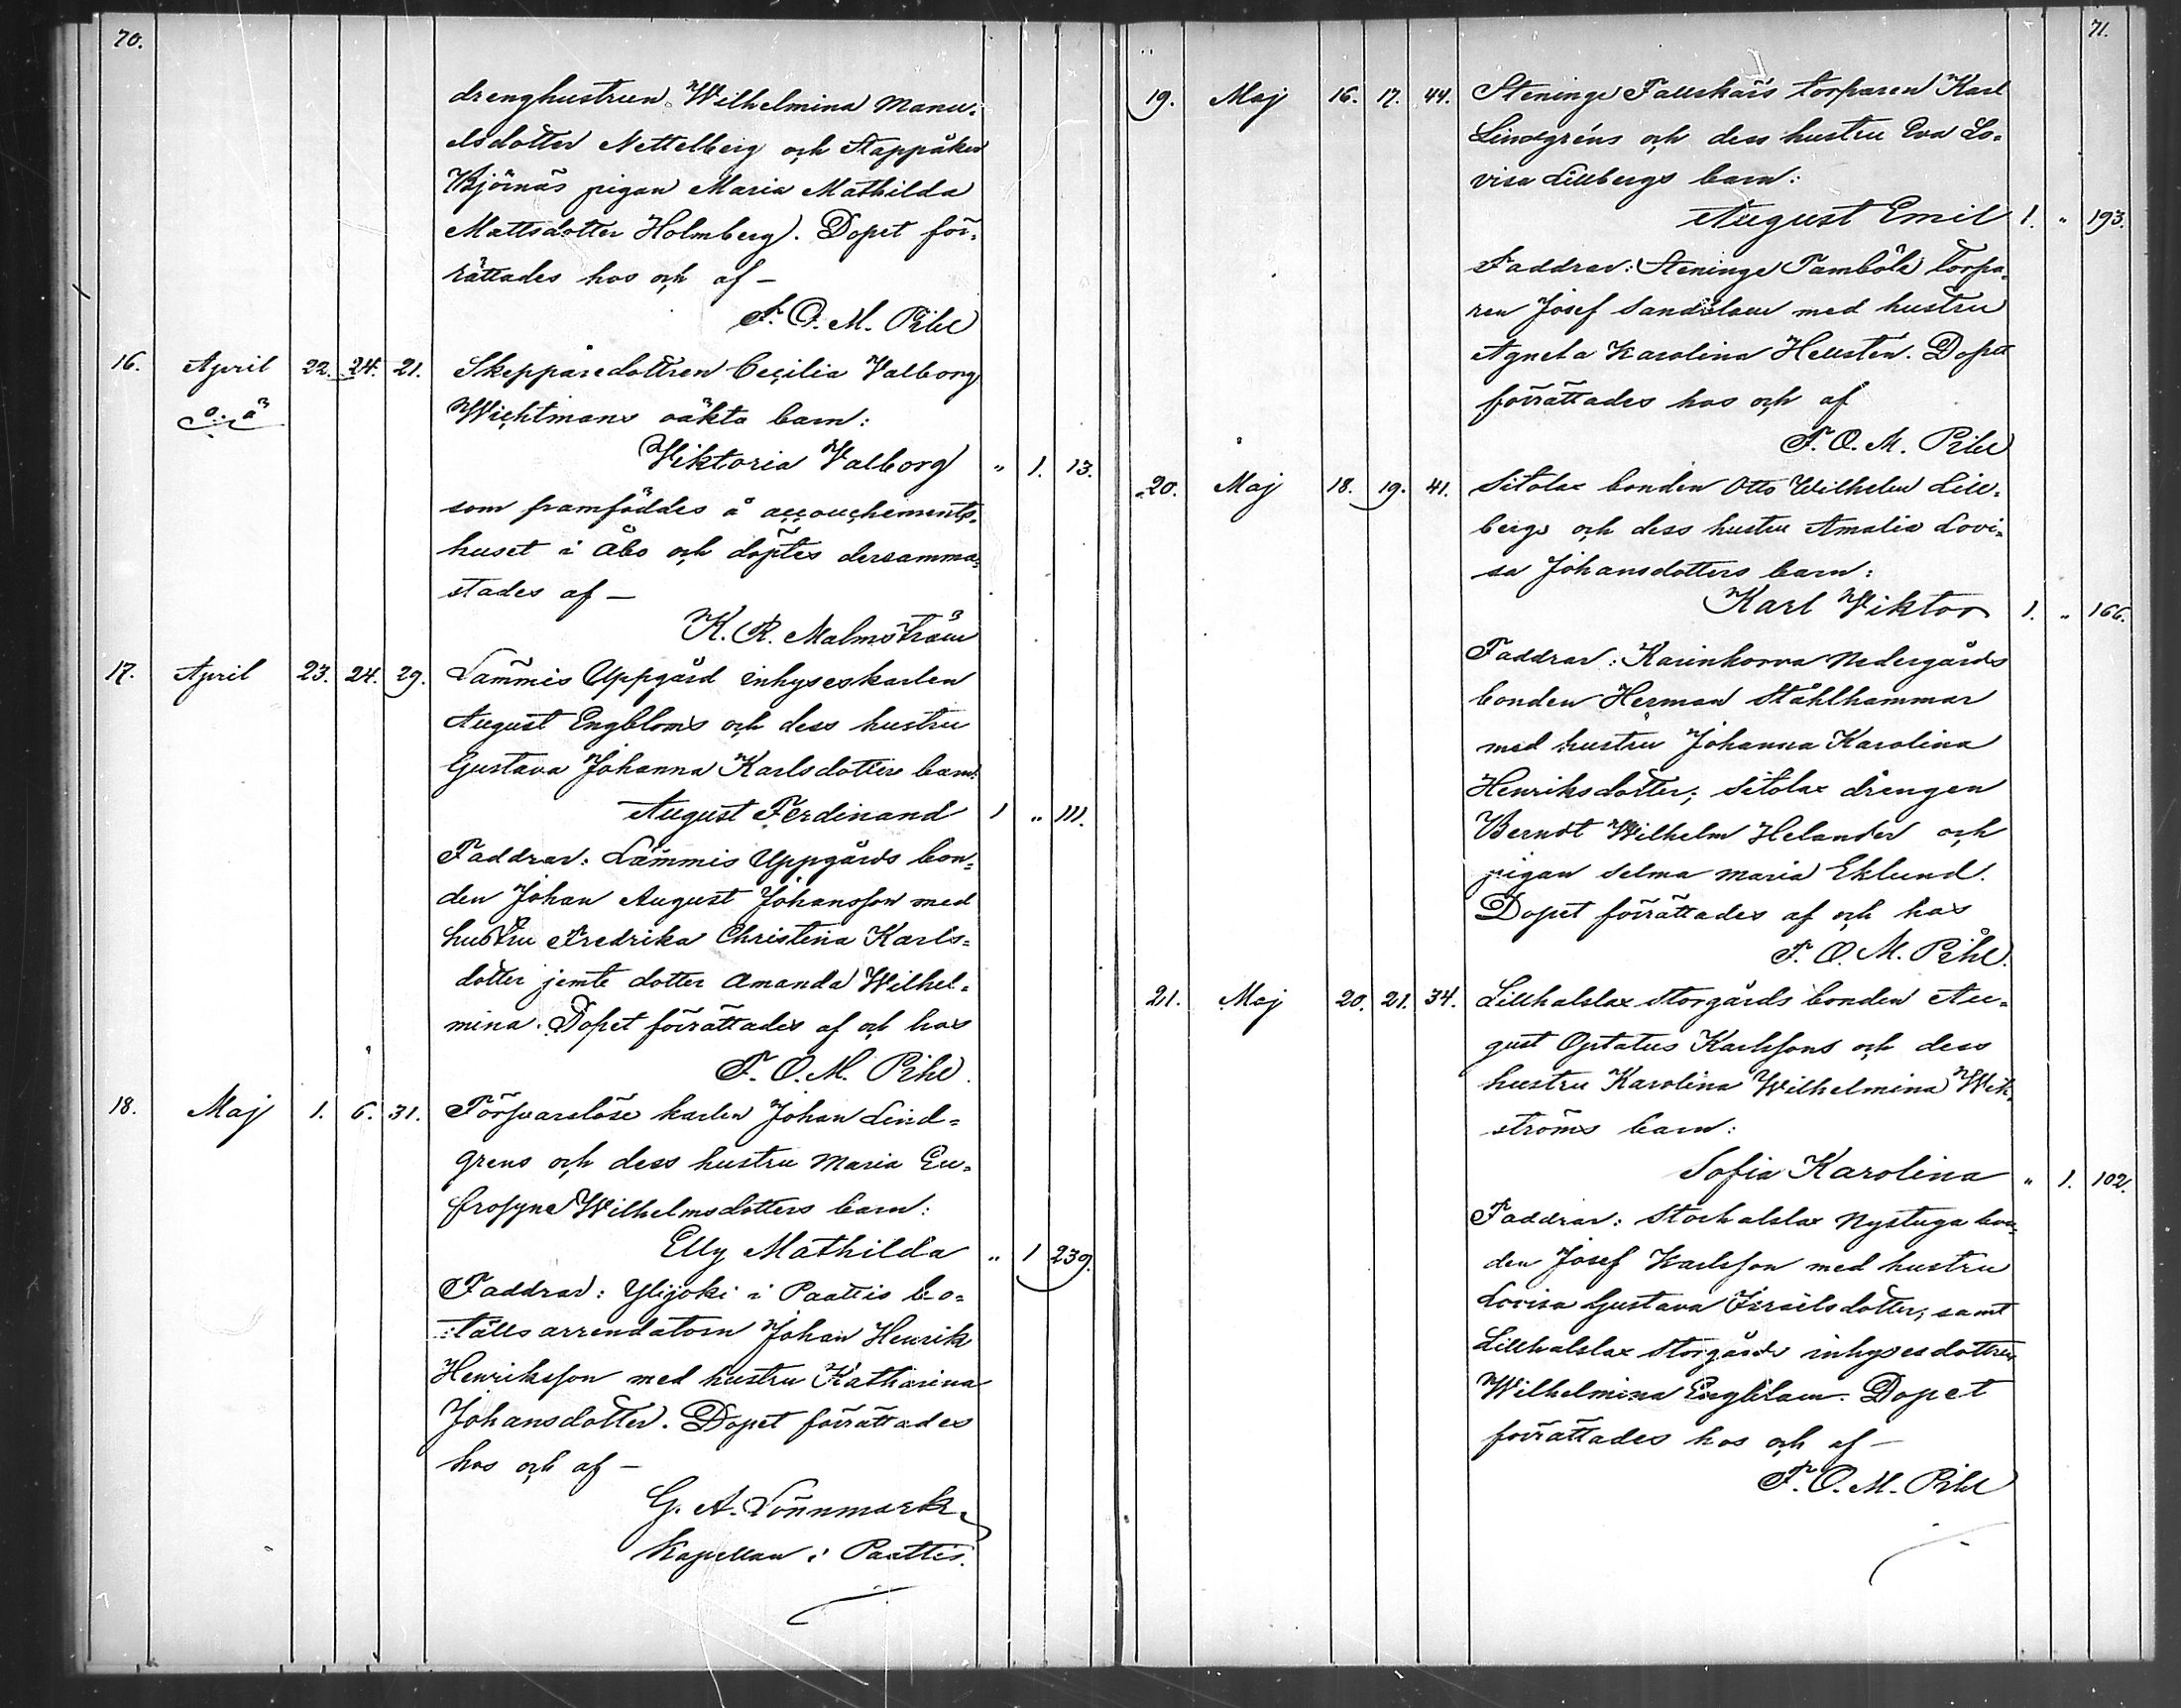 70.
drenghustrun Wilhelmina Manu-
elsdotter Nettelberg och Stappåker
Björnäs pigan Maria Mathilda
Mattsdotter Holmberg. Dopet för-
rättades hos och af —
F. O. M. Pihl
16. April 22. 24. 21. Skepparedottren Cecilia Valborg
o. ä Wichtmans oäkta barn:
Viktoria Valborg " 1. 13.
som framföddes å accouchements-
huset i Åbo och döptes dersamma-
stades af —
K. R. Malmström
17. April 23. 24. 29. Lammis Uppgård inhyseskarlen
August Engbloms och dess hustru
Gustava Johanna Karlsdotters barn:
August Ferdinand 1 " 111.
Faddrar: Lammis Uppgårds bon-
den Johan August Johansson med
hustru Fredrika Christina Karls-
dotter jemte dotter Amanda Wilhel-
mina. Dopet förrättades af och hos
F. O. M. Pihl.
18. Maj 1. 6. 31. Försvarslöse karlen Johan Lind-
grens och dess hustru Maria Eu-
frosyne Wilhelmsdotters barn:
Elly Mathilda " 1 239.
Faddrar: Ylijoki i Paattis bo-
ställs arrendatorn Johan Henrik
Henriksson med hustru Katharina
Johansdotter. Dopet förrättades
hos och af —
G. A. Lönnmark
Kapellan i Paattis.
71.
19. Maj 16. 17. 44. Steninge Fallskärs torparen Karl
Lindgréns och dess hustru Eva Lo-
visa Lillbergs barn:
August Emil 1. " 193.
Faddrar: Steninge Tamböle torpa-
ren Josef Sandelom med hustru
Agneta Karolina Hellstén. Dopet
förrättades hos och af
F. O. M. Pihl
20. Maj 18. 19. 41. Sitolax bonden Otto Wilhelm Lill-
bergs och dess hustru Amalia Lovi-
sa Johansdotters barn:
Karl Viktor 1. " 166.
Faddrar: Karinkorva Nedergårds
bonden Herman Ståhlhammar
med hustru Johanna Karolina
Henriksdotter; Sitolax drengen
Berndt Wilhelm Helander och
pigan Selma Maria Eklund.
Dopet förrättades af och hos
F. O. M. Pihl.
21. Maj 20. 21. 34. Lillhalslax Storgårds bonden Au-
gust Optatus Karlssons och dess
hustru Karolina Wilhelmina Wik-
ströms barn:
Sofia Karolina " 1. 102.
Faddrar: Storhalslax Nystuga bon-
den Josef Karlsson med hustru
Lovisa Gustava Israelsdotter; samt
Lillhalslax Storgårds inhysesdottren
Wilhelmina Engblom. Dopet
förrättades hos och af —
F. O. M. Pihl